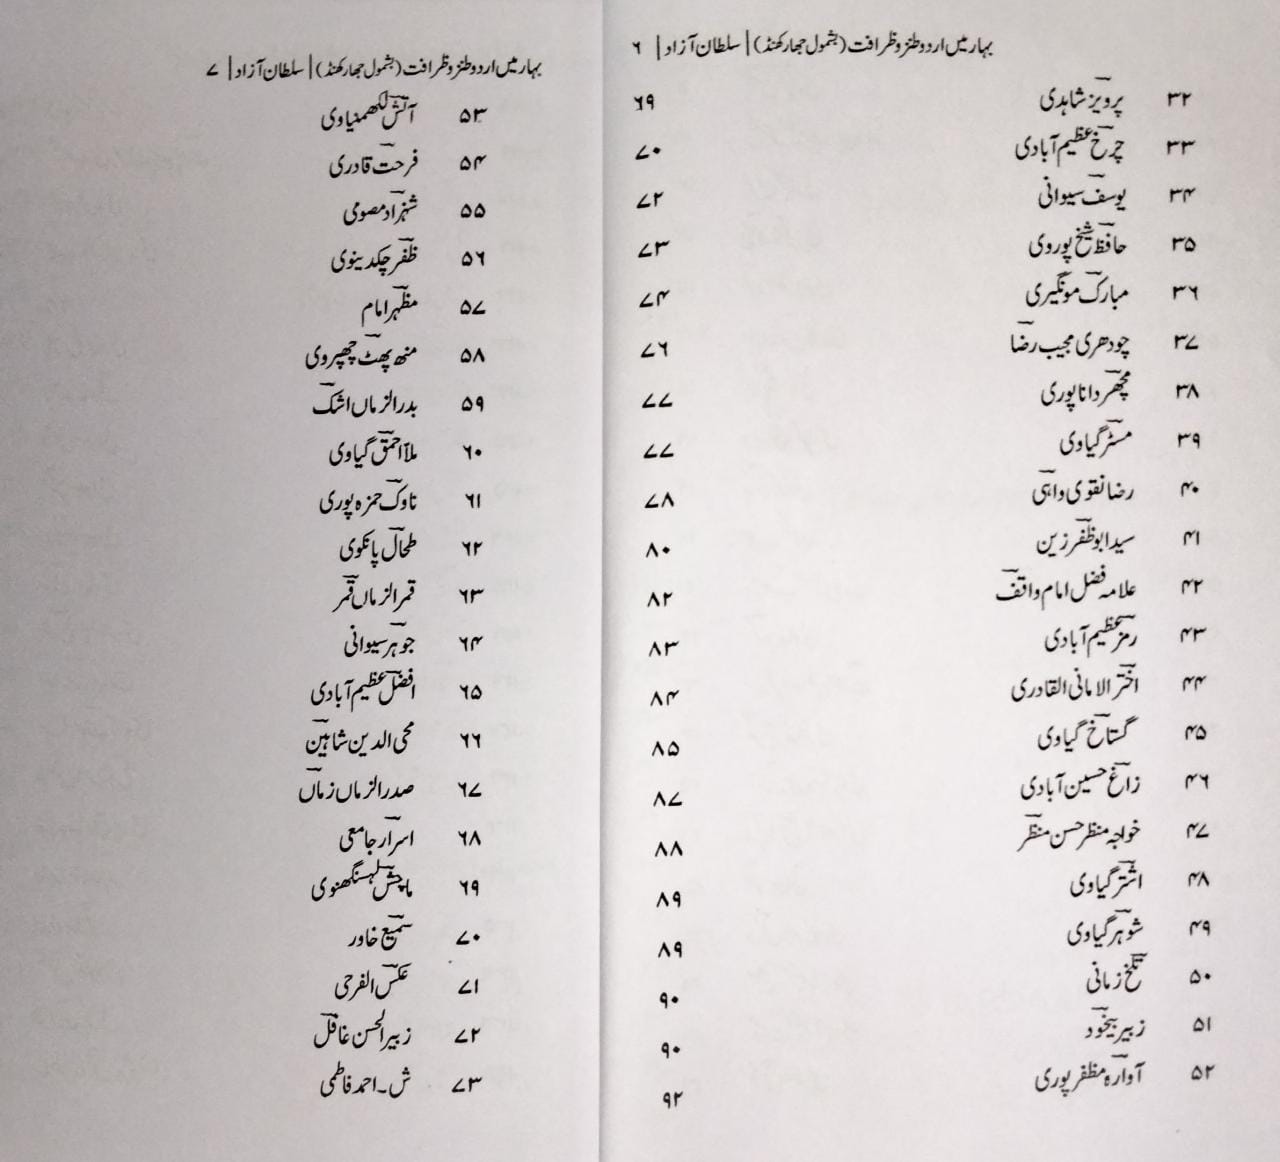 بہار میں اردو طنز و ظرافت (بشمول جھارکھنڈ) | سلطان آزاد | ۶
۳۲ پرویز شاہدی ۶۹
۳۳ چرخ عظیم آبادی ۷۰
۳۴ یوسف سیوانی ۷۲
۳۵ حافظ شیخ پوروی ۷۳
۳۶ مبارک مونگیری ۷۴
۳۷ چودھری مجیب رضا ۷۶
۳۸ مچھر داناپوری ۷۷
۳۹ مسٹر گیاوی ۷۷
۴۰ رضا نقوی واہی ۷۸
۴۱ سید ابوظفر زین ۸۰
۴۲ علامہ فضل امام واقف ۸۲
۴۳ رمز عظیم آبادی ۸۳
۴۴ اختر الامانی القادری ۸۴
۴۵ گستاخ گیاوی ۸۵
۴۶ زاغ حسین آبادی ۸۷
۴۷ خواجہ منظر حسن منظر ۸۸
۴۸ اشتر گیاوی ۸۹
۴۹ شوہر گیاوی ۸۹
۵۰ تلخ زمانی ۹۰
۵۱ زبیر بیخود ۹۰
۵۲ آوارہ مظفر پوری ۹۲
بہار میں اردو طنز و ظرافت (بشمول جھارکھنڈ) | سلطان آزاد | ۷
۵۳ آتش لکھمنیاوی
۵۴ فرحت قادری
۵۵ شہزاد معصومی
۵۶ ظفر چکدینوی
۵۷ مظہر امام
۵۸ منھ پھٹ چھپروی
۵۹ بدر الزماں اشک
۶۰ ملا احمق گیاوی
۶۱ ناوک حمزہ پوری
۶۲ طحال پانکوی
۶۳ قمر الزماں قمر
۶۴ جوہر سیوانی
۶۵ افضل عظیم آبادی
۶۶ محی الدین شاہین
۶۷ صدر الزماں زماں
۶۸ اسرار جامعی
۶۹ ماچش لہسنگھنوی
۷۰ سمیع خاور
۷۱ عکس الفرحی
۷۲ زبیر الحسن غافل
۷۳ ش۔احمد فاطمی